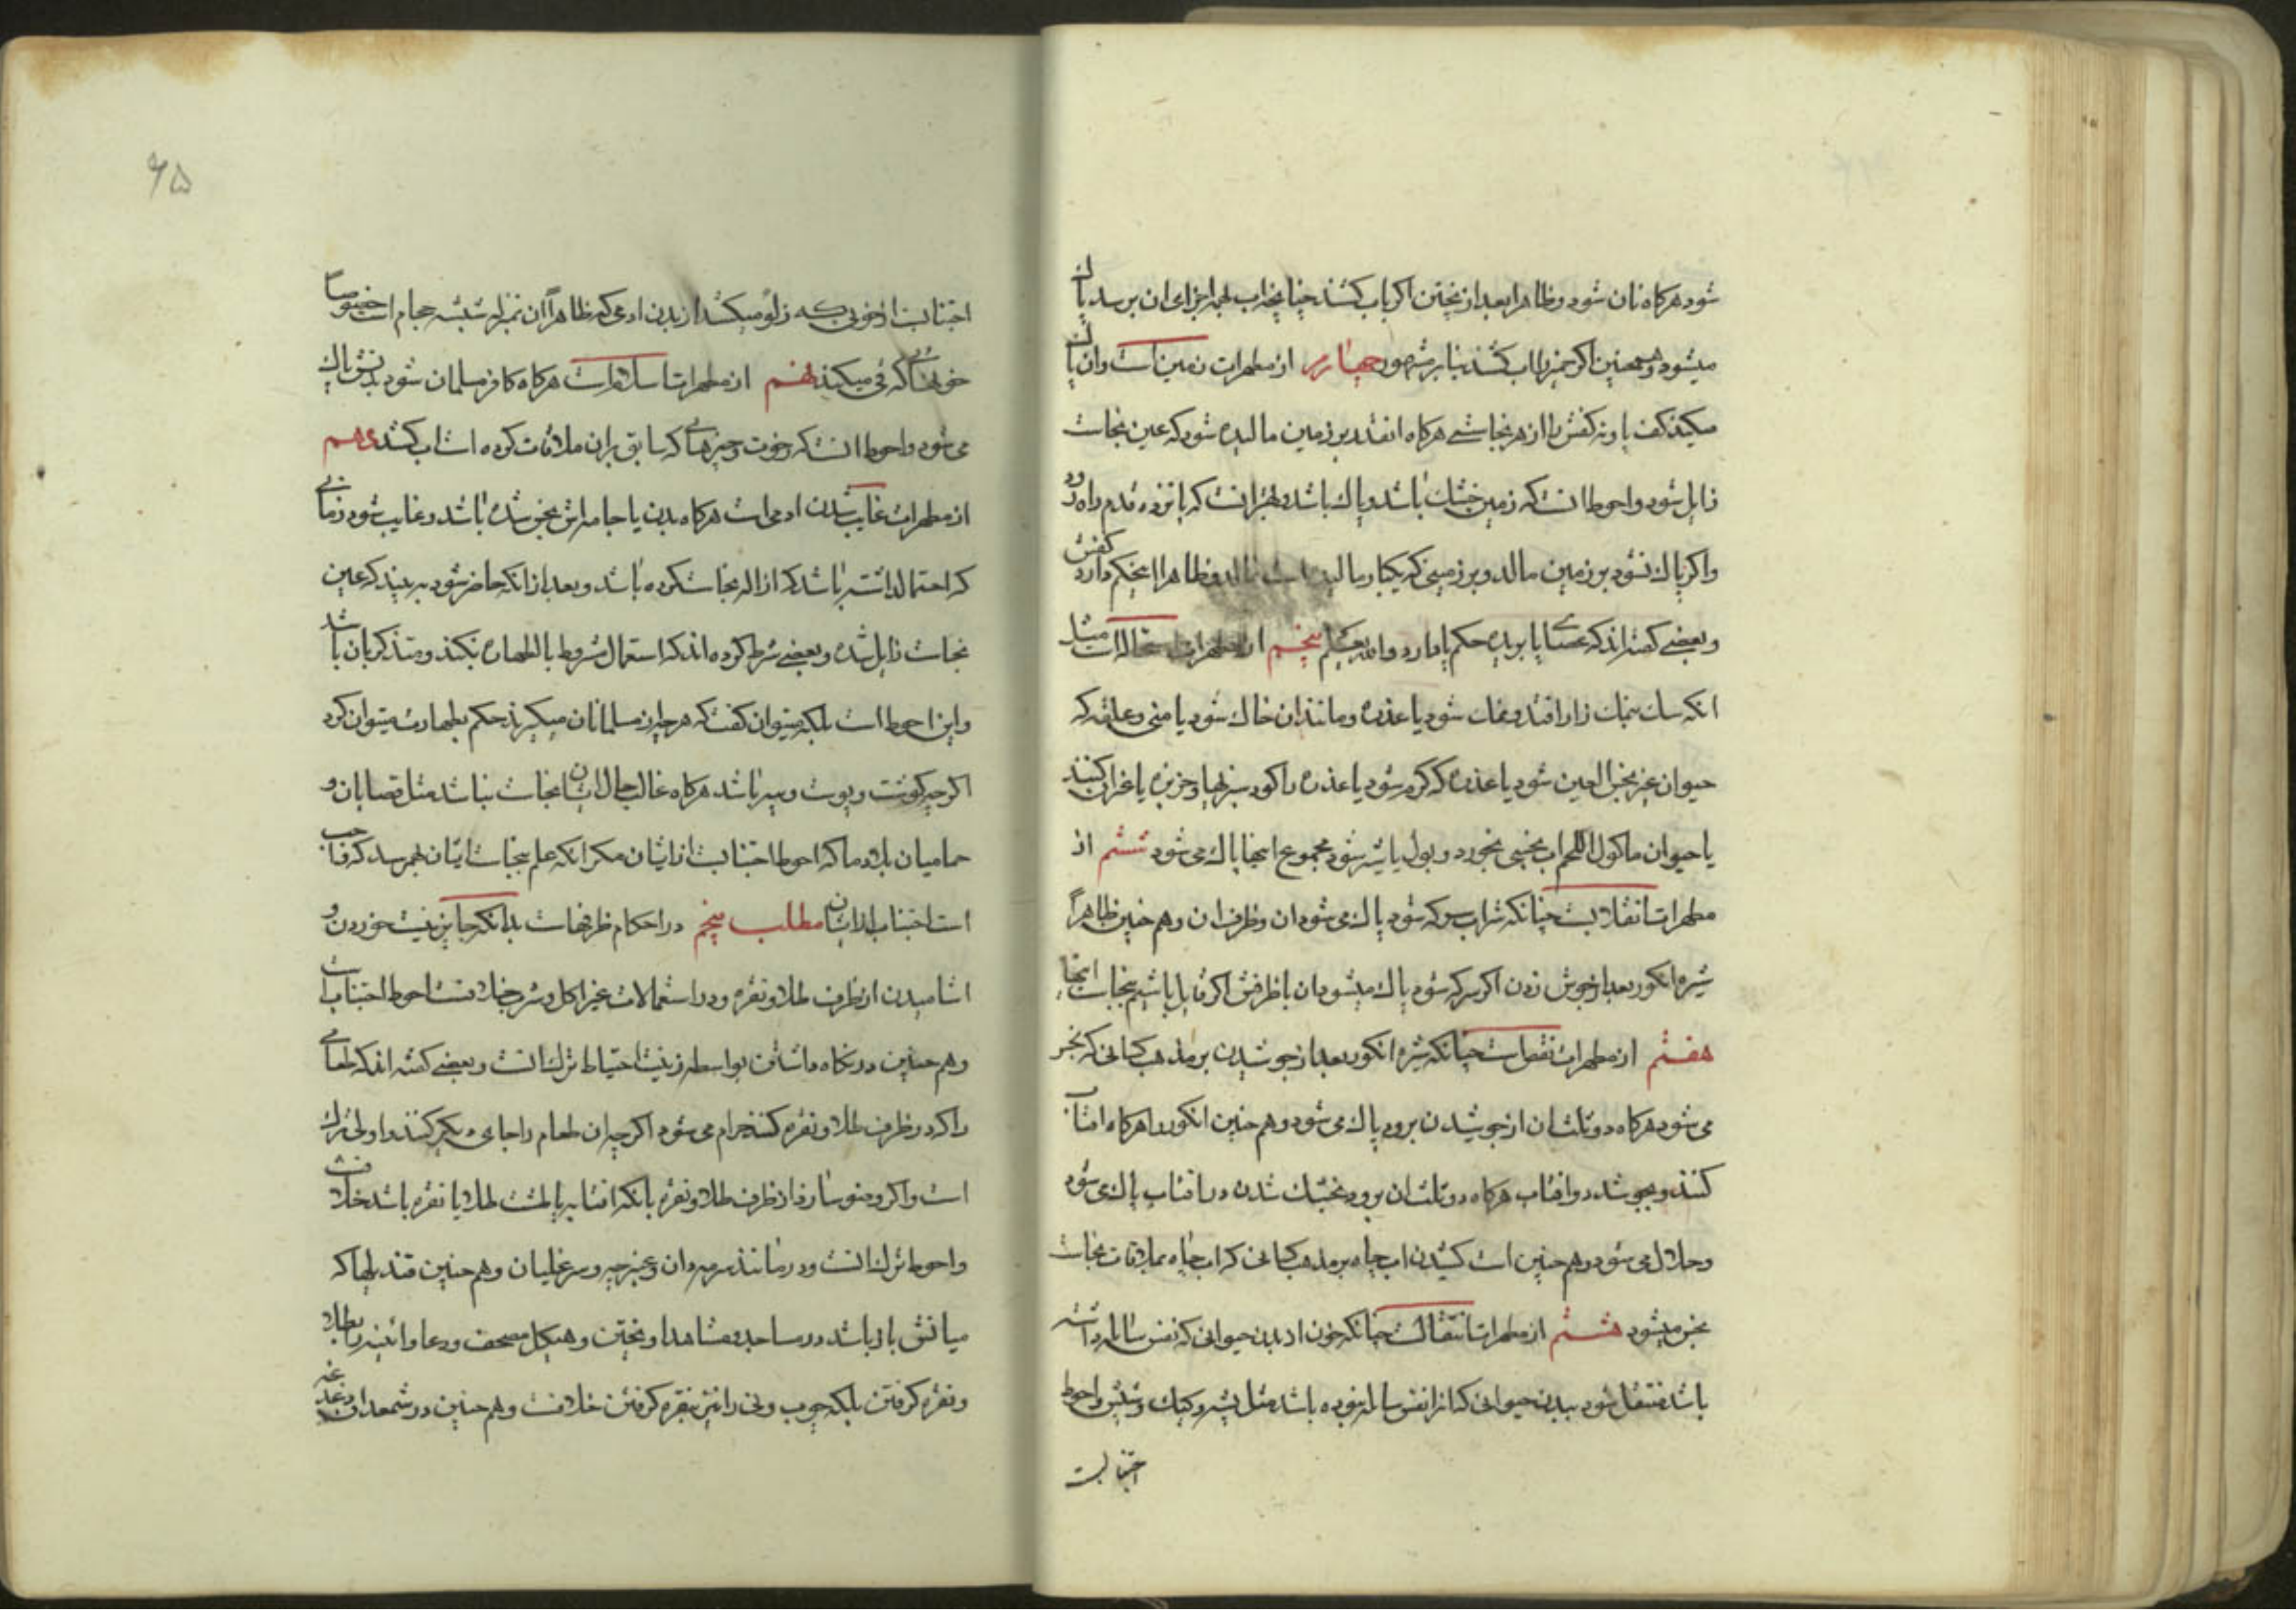 شود هرکاه نان شود و ظاهرا بعد از پختن اکر باب کشند چنانچه اب بهمه اجزای ان برسد پاک
میشود و همچنین اکر خمیر را اب کشند بنابر مشهور چهارم از مطهرات زمین است و ان پاک
میکند کف پا و ته کفش را از هر نجاستی هرکاه انقدر بر زمین مالیده شود که عین نجاست
زایل شود و احوط انست که زمین خشک باشد و پاک باشد و بهتر انست که پانزده قدم راه رود
و اکر پاک نشود بر زمین مالد و بر زمینی که یکبار مالیده است نمالد و ظاهرا این حکم دارد کفش
و بعضی کفته اند که عصای پا بریده حکم پا دارد و الله یعلم پنجم از مطهرات استحاله است مثل
انکه سک بنمک زار افتد و نمک شود یا عذره و مانند ان خاک شود یا منی و علقه که
حیوان غیر نجس العین شود یا عذره که کرم شود یا عذره را کود سبزیها و خربزه یا غیر ان کنند
یا حیوان ماکول اللحم اب نجسی بخورد و بول یا شیر شود مجموع اینها پاک می شود ششم از
مطهرات انقلابست چنانکه شراب سرکه شود پاک می شود ان و ظرف ان و هم چنین ظاهراً
شیره انکور بعد از جوش زدن اکر سرکه شود پاک میشود ان با ظرفش اکر قایل باشیم بنجاست انها
هفتم از مطهرات نقص است چنانکه شیره انکور بعد از جوشیدن بر مذهب کسانی که نجس
می شود هرکاه دو ثلث ان از جوشیدن برود پاک می شود و هم چنین انکور را هرکاه افتاب
کنند و بجوشد در افتاب هرکاه دو ثلث ان برود بخشک شدن در افتاب پاک می شود
و حلال می شود و هم چنین است کشیدن اب چاه بر مذهب کسانی که اب چاه بملاقات نجاست
نجس میشود هشتم از مطهرات انتقالست چنانکه خون از بدن حیوانی که نفس سائله داشته
باشد منتقل شود ببدن حیوانی که انرا نفس سائله نبوده باشد مثل پشه و کیک و شپش و احوط
اجتناب
۶۵
اجتناب از خونی که زلو میکشد از بدن ادمی که ظاهراً ان بمنزله شیشه حجام است خصوصا
خونهائی که قی میکند نهم از مطهرات اسلامست هرکاه کافر مسلمان شود بدنش پاک
می شود و احوط انست که رخوت و چیزهائی که سابق بران ملاقات کرده است اب کشد دهم
از مطهرات غایب شدن ادمی است هرکاه بدن یا جامه اش نجس شده باشد و غایب شود زمانی
که احتمال داشته باشد که ازاله نجاست کرده باشد و بعد از انکه حاضر شود به بیند که عین
نجاست زایل شده و بعضی شرط کرده اند که استعمال مشروط بالطهاره بکند و متذکر بان باشد
و این احوط است بلکه میتوان کفت که هر چه از مسلمانان میکیرند حکم بطهارت میتوان کرد
اکرچه کوشت و پوست و پنیر باشد هرکاه غالب حال ایشان نجاست نباشد مثل قصابان و
حمامیان بلاد ما که احوط اجتنابست از ایشان مکر انکه علم بنجاست ایشان بهم رسد که واجب
است اجتناب از ایشان مطلب پنجم در احکام ظرفهاست بدانکه جایز نیست خوردن و
اشامیدن از ظرف طلا و نقره و در استعمالات غیر اکل و شرب خلافست احوط اجتنابست
و هم چنین در نکاه داشتن بواسطه زینت احتیاط ترک انست و بعضی کفته اند که طعامی
را که در ظرف طلا و نقره کنند حرام می شود اکرچه ان طعام را جای دیکر کنند و اولی ترک
است و اکر وضو سازد از ظرف طلا و نقره بانکه افتابه یا لمشت طلا یا نقره باشد خلافست
و احوط ترک انست و در مانند سرمه دان و عنبرچه و سر غلیان و هم چنین قندیلها که
میانش باز باشد در مساجد و مشاهد اویختن و هیکل مصحف و دعا و ائینه را بطلا
و نقره کرفتن بلکه چوب ونی را نیز بنقره کرفتن خلافست و هم چنین در شمعدان دغدغه